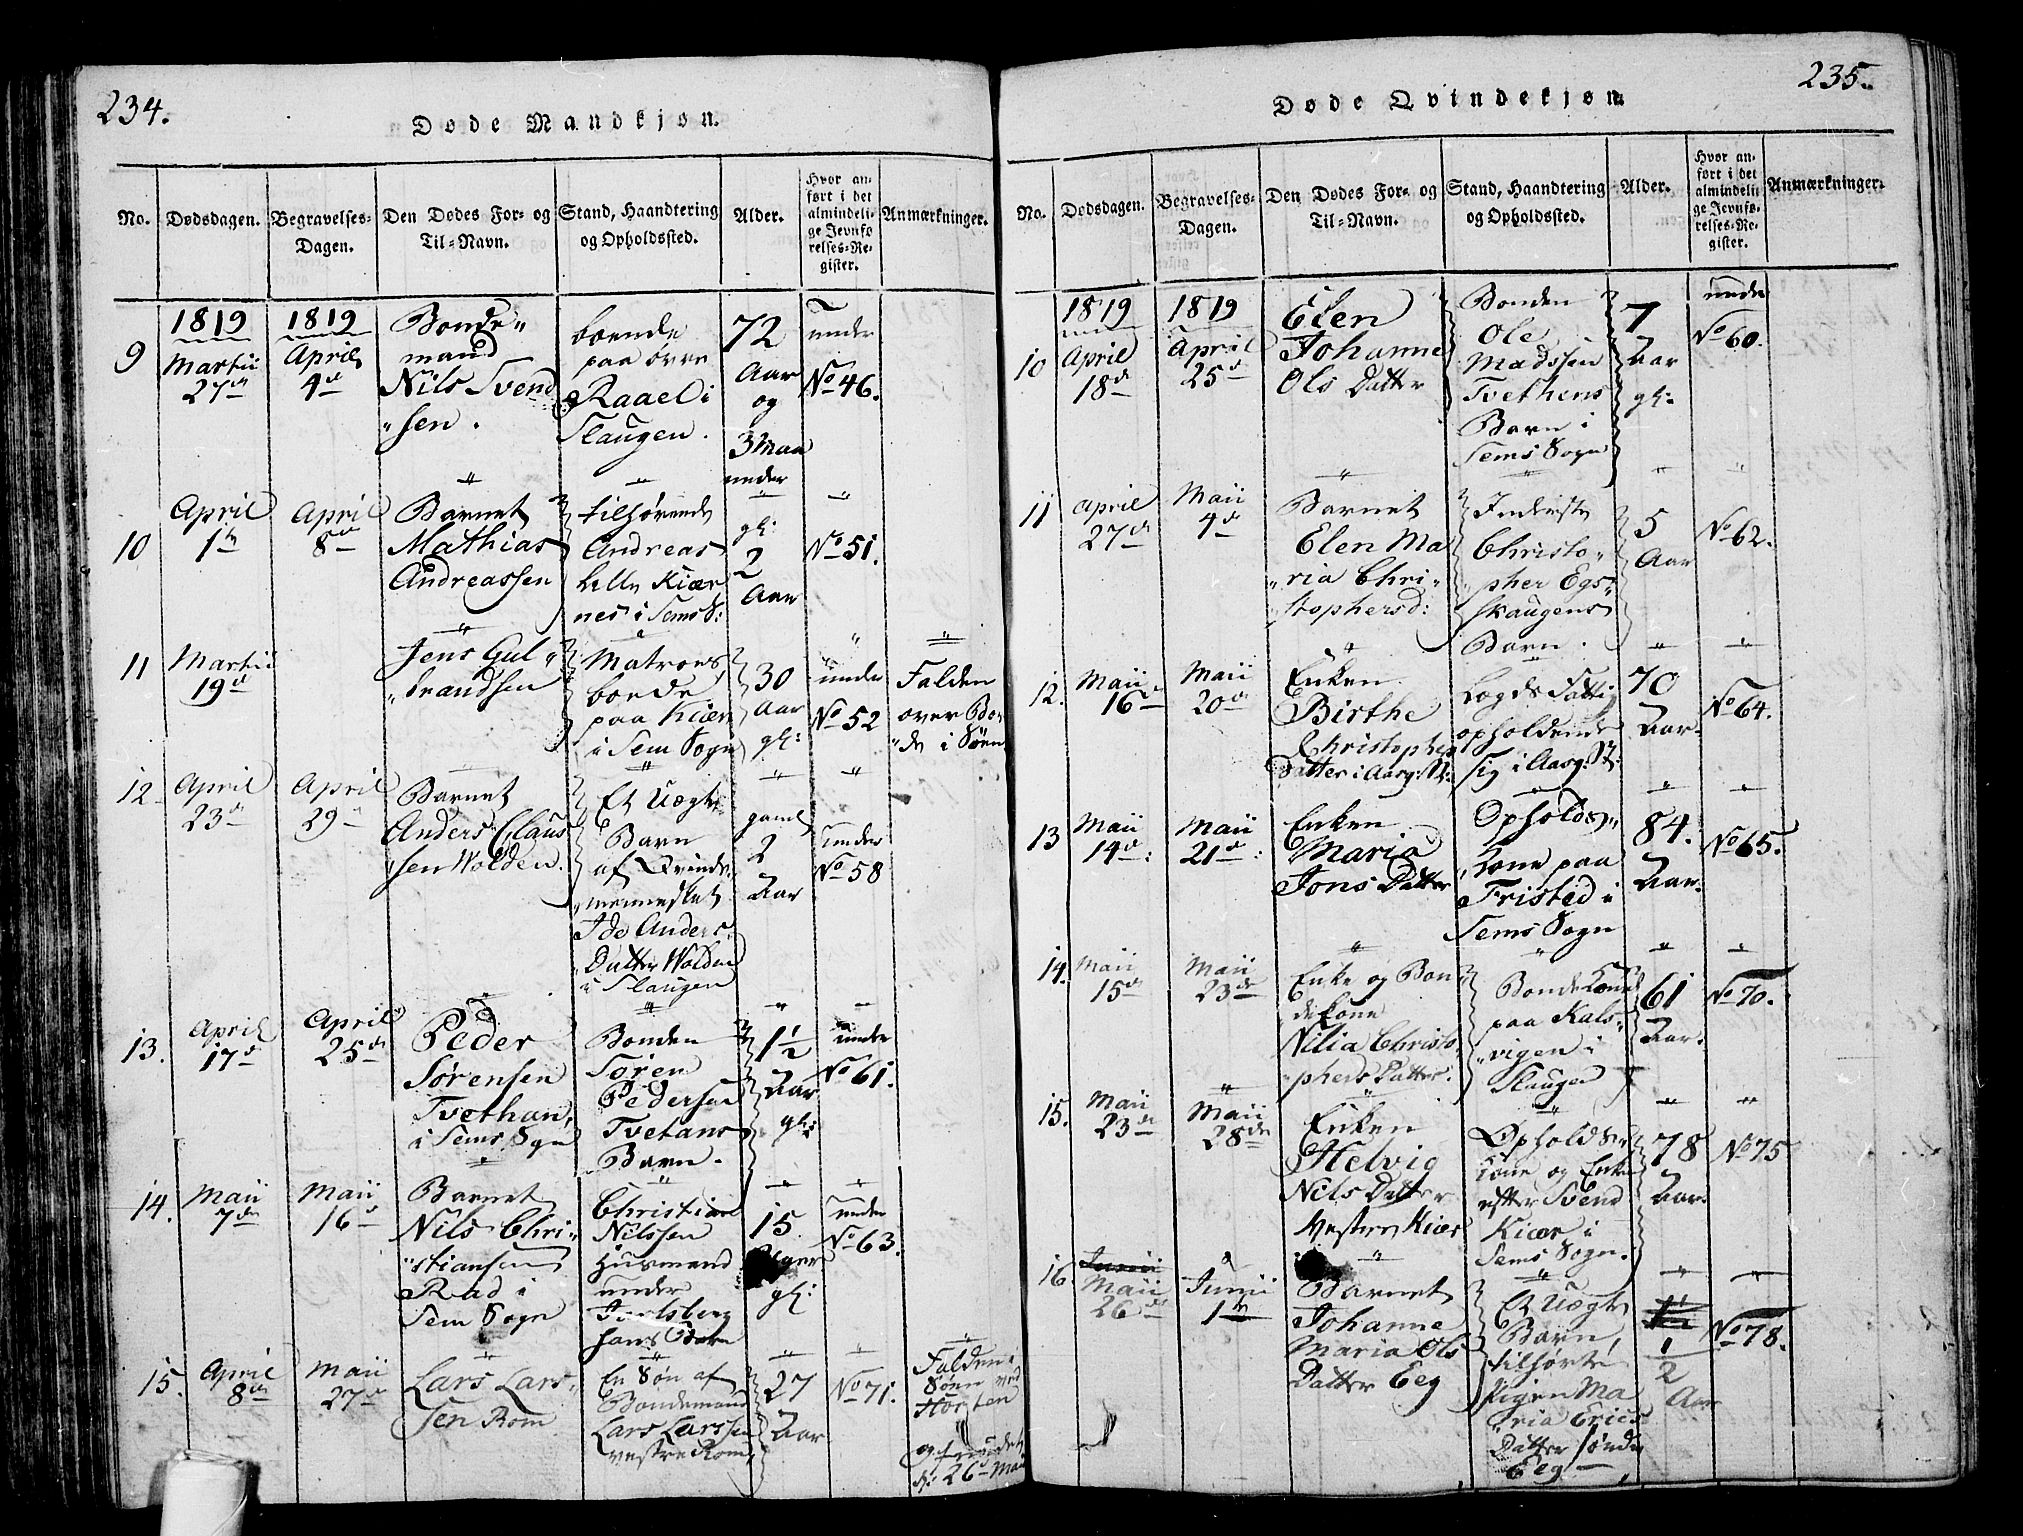 234.
Døde Mandkjøn.
No.
Dødsdagen.
Begravelses-
Dagen.
Den Dødes For- og
Til-Navn.
Stand, Haandtering
og Opholdssted.
Alder.
Hvor an-
ført i det
almindeli-
ge Jevnfø
relses-Re-
gister.
Anmærkninger.
9
1819
Martii
27de
1819
April
4de
Bonde"
mand
Nils Svend
"sen.
boende
paa øvre
Raael i
Slaugen.
72
Aar
og
3 Maa
under
No 46.
10
April
1te
April
8de
Barnet
Mathias
Andreassen
tilhørende
Andreas
Lille Kiær
nes i Sems S:
under
gl:
2
Aar
No 51.
11
Martii
19de
Jens Gul"
"brandsen
Matros
boende
paa Kiær
i Sem Sogn
30
Aar
gl:
under
No 52
Falden
over Bor
"de i Søen
12
April
23de
April
29de
Barnet
Anders Claus
"sen Wolden.
Et Uægte
Barn
af Qvinde-
"mennesket
Ide Anders-
"Datter Wolden
i Slaugen
gaml
2
Aar
under
No 58
13.
April
17de
April
25de
Peder
Sørensen
Tvethan,
i Sems Sogn
Bonden
Søren
Pedersen
Tvetans
Barn.
1½
Aar
gl:
under
No 61.
14.
Maii
7de
Maii
16de
Barnet
Nils Chri-
"stiansen
Rad i
Sem Sogn
Christian
Nilssen
Huusmand
under
Jarlsberg
hans Barn
15
Uger
gl:
under
No 63.
15.
April
8de
Maii
27de
Lars Lars-
sen Rom
En Søn af
Bondemand
Lars Larssen
vestre Rom,
27
Aar
No 71.
Falden i
Søen ved
Horsten
og fundet
d: 26de Maii
235.
Døde Qvindekjøn.
No.
Dødsdagen.
Begravelses-
Dagen.
Den Dødes For- og
Til-Navn.
Stand, Haandtering
og Opholdssted.
Alder.
Hvor an-
ført i det
almindeli
ge Jevnfø-
relses-Re-
gister.
Anmærkninger.
10
1819
April
18de
1819
April
25de
Elen
Johanne
Ols Datter
Bonden
Ole
Madssen
Tvethens
Barn i
Sems Sogn
7
Aar
gl:
under
No 60.
11
April
27de
Maii
4de
Barnet
Elen Ma
"ria Chri"
"stophersd:
Inderste
Christo"
"pher Egs"
"skaugens
Barn.
5
Aar
No 62.
12.
Maii
16de
Maii
20de
Enken
Birthe
Christopher
Datter i Aasg: St:
Lægds Fattig
opholdende
sig i Aasg: St:
70
Aar.
No 64.
13
Maii
14de:
Maii
21de:
Enken
Maria
Jons Datter
Opholds"
"Kone paa
Fristed i
Sems Sogn
84.
Aar.
No 65.
14.
Maii
15de
Maii
23de
Enke og Bon-
dekone
Nilia Christo-
"phers Datter.
Bonde Kone
paa Kals-
"vigen i
Slaugen
61
Aar.
No 70.
15.
Maii
23de
Maii
28de
Enken
Helvig
Nils Datter
Vestre Kiær
Opholds"
Kone og Enke
efter Svend
Kiær i
Sems Sogn.
78
Aar.
No 75
16.
Junii
Maii
26de
Junii
1te
Barnet
Johanne
Maria Ols
Datter Eeg
Et Uægte
Barn,
tilhørte
Pigen Ma
"ria Erics
Datter søndre
Eeg
1
2
Aar
No 78.